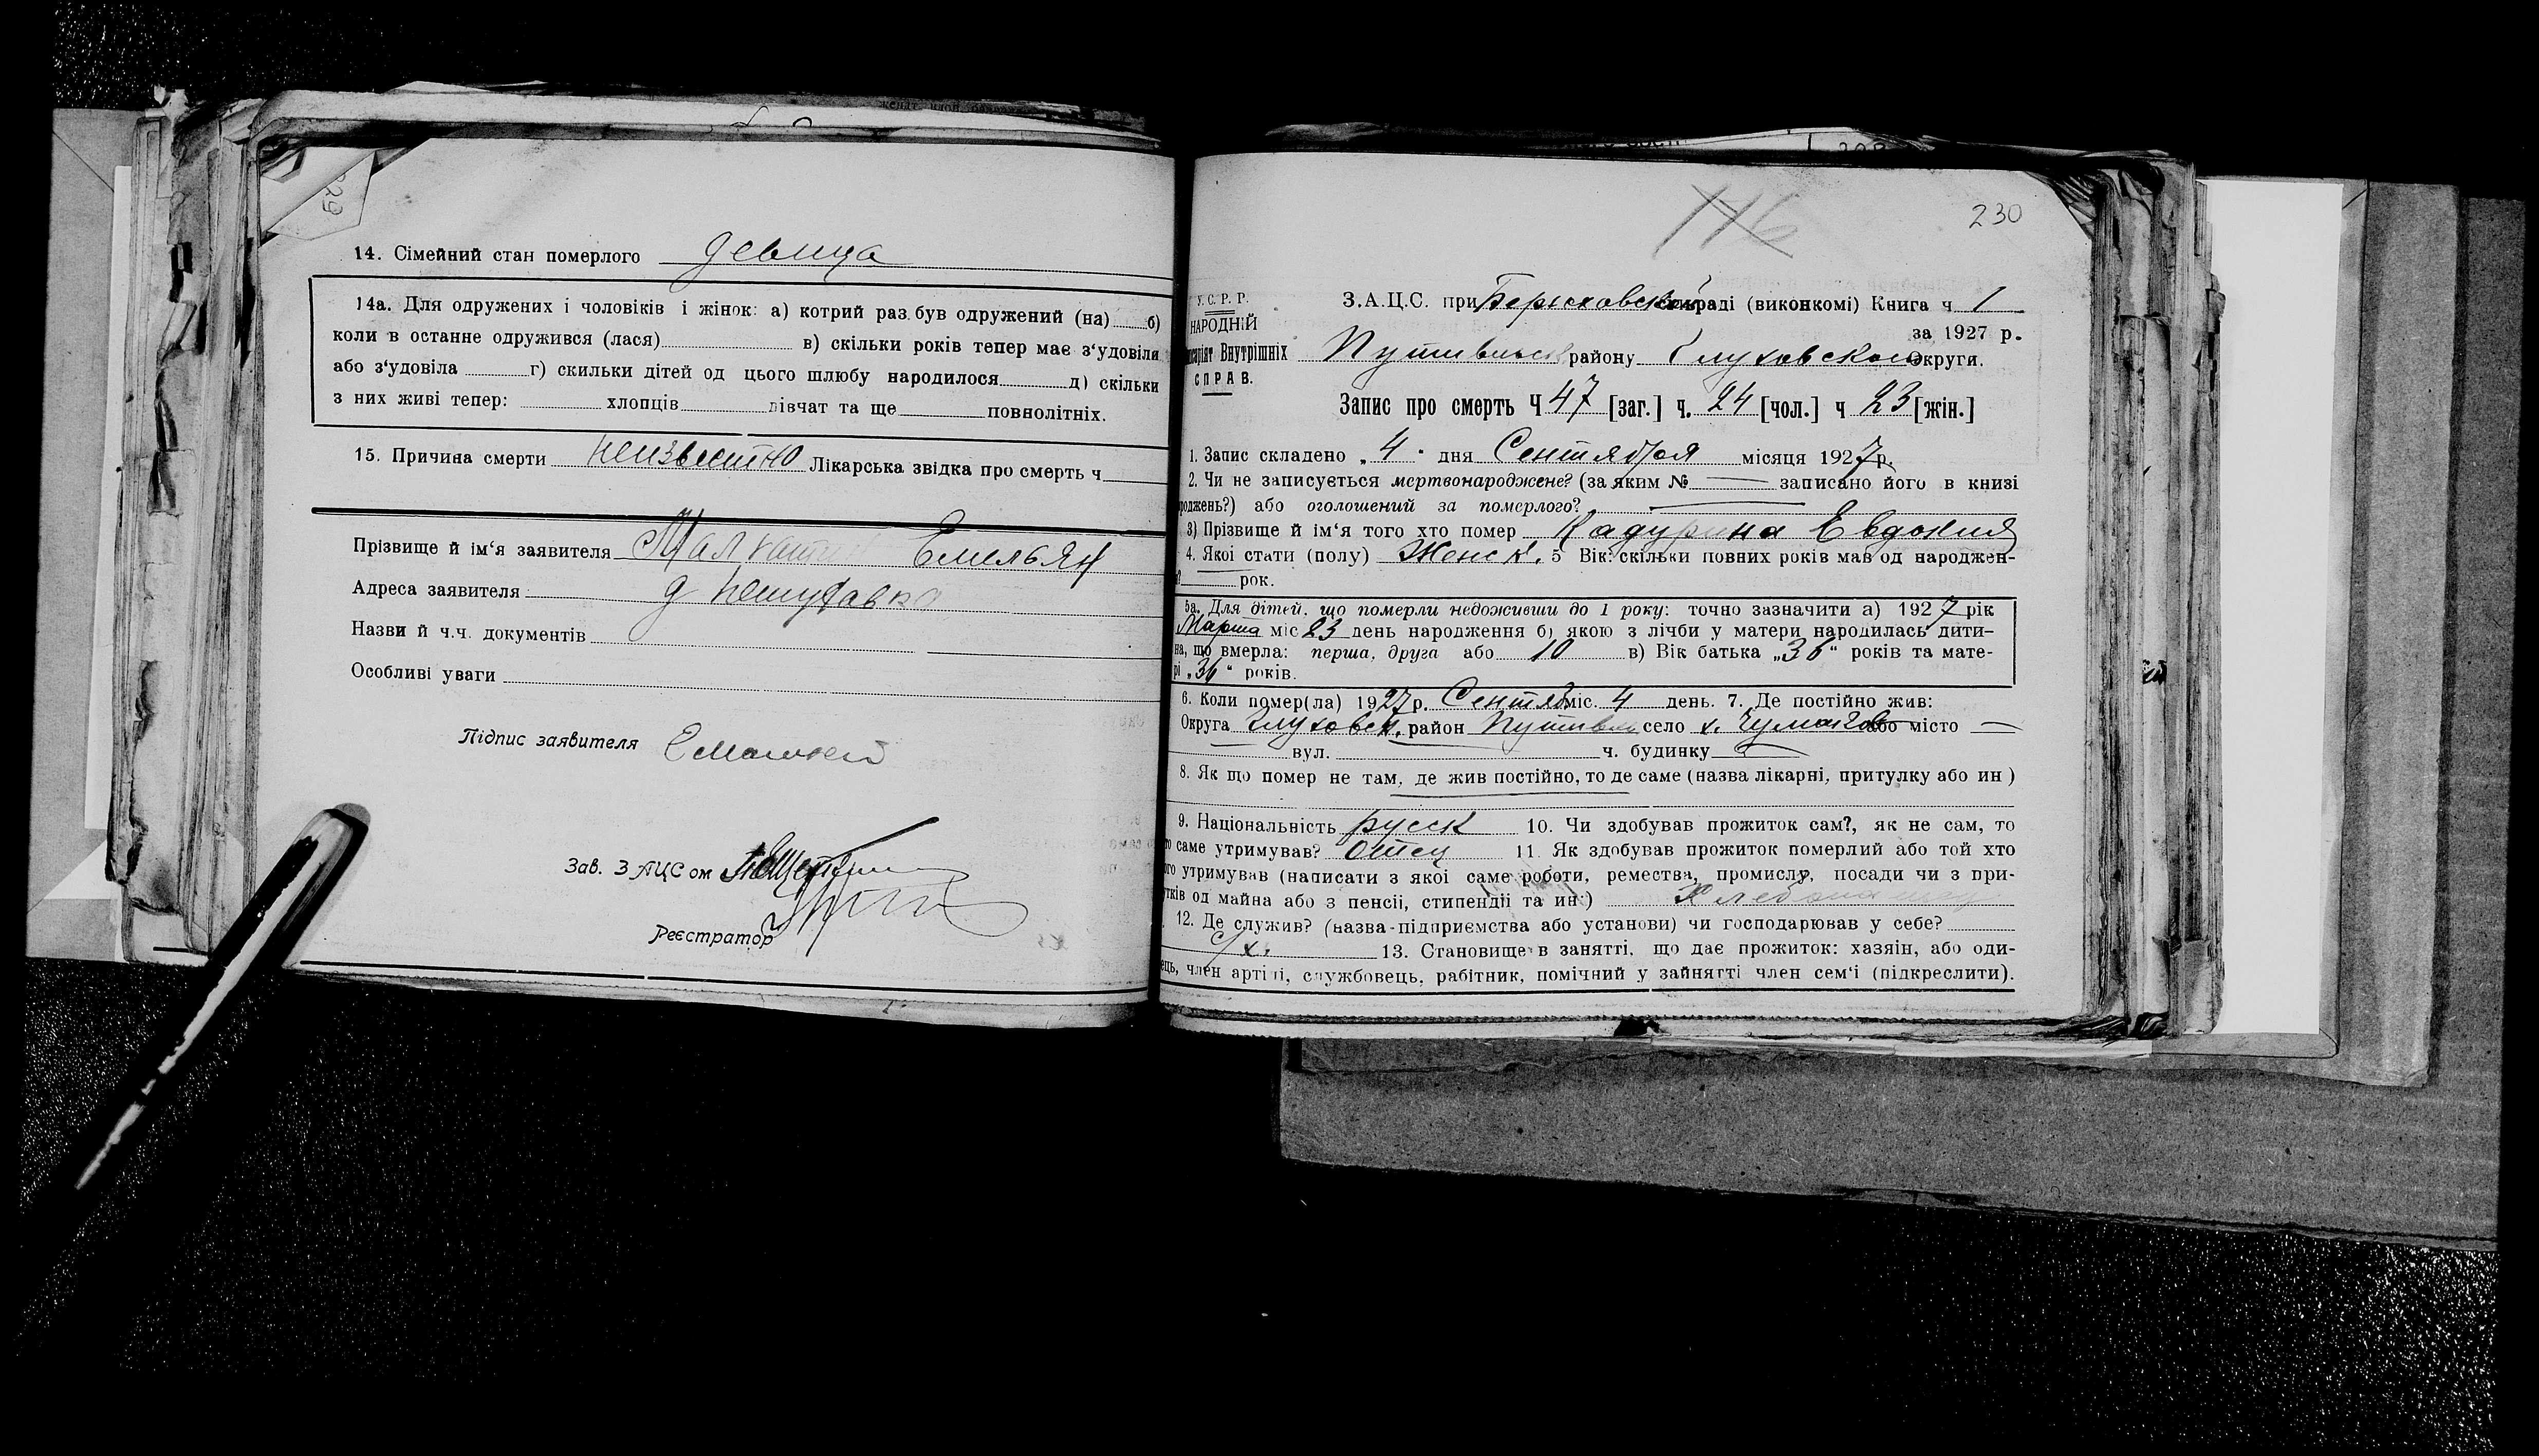 14. Сімейний стан померлого девица
14а. Для одружених і чоловіків і жінок: а) котрий раз був одружений (на) б)
коли в останне одружився (лася) в) скільки років тепер має з‘удовіли
або з‘удовіла г) скильки дітей од цього шлюбу народилося д) скільки
з них живі тепер: хлопців дівчат та ще повнолітніх.
15. Причина смерти неизвестно Лікарська звідка про смерть ч
Прізвище й ім‘я заявителя Емельян
Адреса заявителя д
Назви й ч.ч. документів
Особливі уваги
Підпис заявителя
Зав. ЗАЦСом
Реєстратор
116
230
У.С.Р.Р.
НАРОДНІЙ
Внутрішніх
СПРАВ.
З.А.Ц.С. при раді (виконкомі) Книга ч 1
за 1927 р.
Путивльск району Глуховской Округи.
Запис про смерть Ч 47 [заг.] ч. 24 [чол.] ч 23 [жін.]
1. Запис складено „4" дня Сентября місяця 1927 р.
2. Чи не записується мертвонароджене? (за яким № — записано його в книзі
роджень?) або оголошений за померлого?
3) Прізвище й ім‘я того хто помер Кадурина Евдокия
4. Якої стати (полу) Женск. 5 Вік: скільки повних років мав од народжен-
рок.
5а. Для дітей, що померли недоживши до 1 року: точно зазначити а) 1927 рік
Марта міс 23 день народження б) якою з лічби у матери народилась дити-
на, що вмерла: перша, друга або 10 в) Вік батька „36“ років та мате-
рі „36“ років.
6. Коли помер(ла) 1927 р. Сентяб міс. 4 день. 7. Де постійно жив:
Округа Глуховск. район Путивл село х. або місто —
вул. ч. будинку
8. Як що помер не там, де жив постійно, то де саме (назва лікарні, притулку або ин )
9. Національність русск 10. Чи здобував прожиток сам?, як не сам, то
саме утримував? Отец 11. Як здобував прожиток померлий або той хто
його утримував (написати з якої саме роботи, ремества, промислу, посади чи з при-
тків од майна або з пенсії, стипендії та ин:)
12. Де служив? (назва-підприємства або установи) чи господарював у себе?
с/х. 13. Становище в занятті, що дає прожиток: хазяін, або оди-
ець, член артілі, службовець, рабітник, помічний у зайнятті член сем‘і (підкреслити).